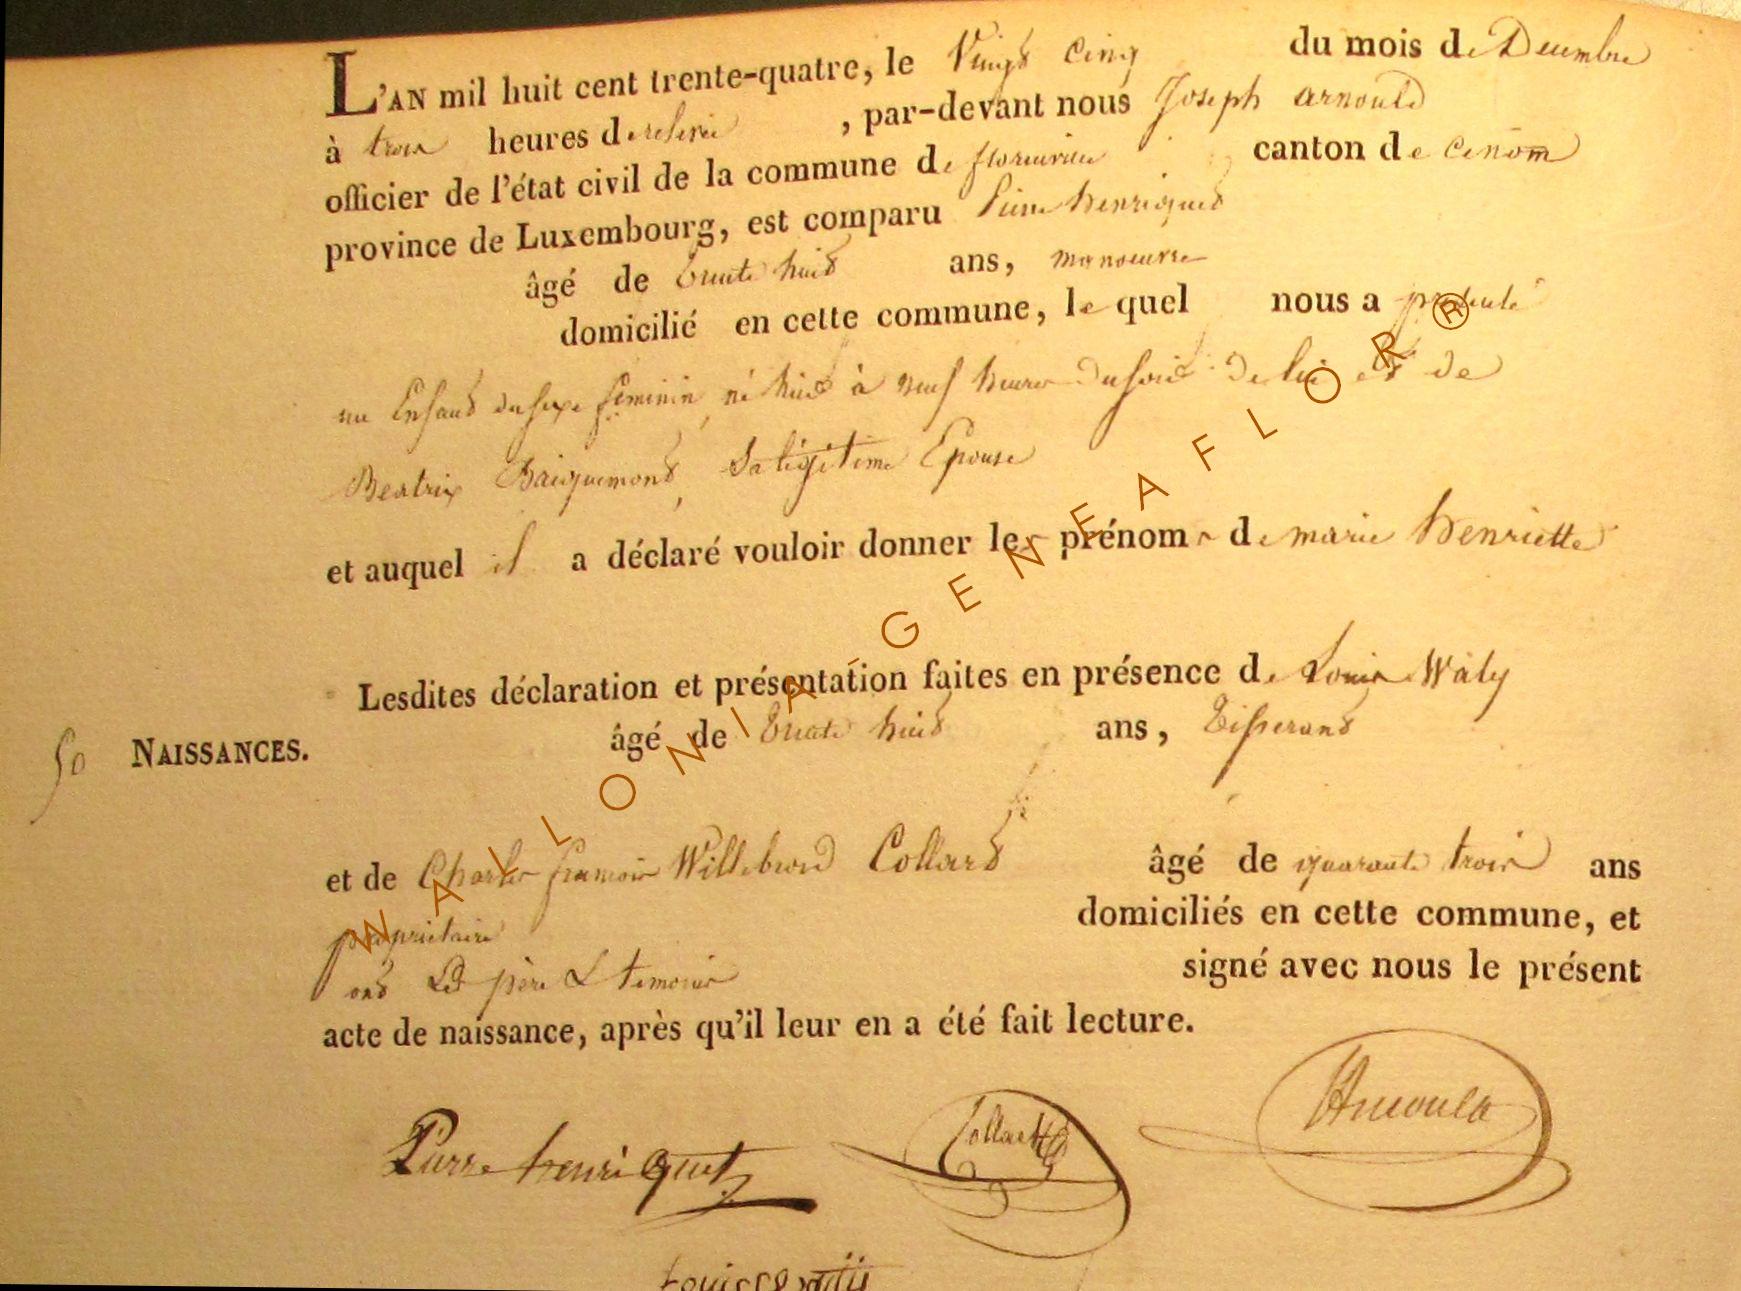 L'AN mil huit cent trente-quatre, le Vingt cinq du mois de Decembre
à trois heures de relevée , par-devant nous Joseph arnould
officier de l'état civil de la commune de florenville canton de
province de Luxembourg, est comparu Pierre henriquet
âgé de trente huit ans, manoeuvre
domicilié en cette commune, le quel nous a presenté
un Enfant du sexe feminin, né hier à neuf heures du soir de lui et de
Beatrix Sa légitime Epouse
et auquel il a déclaré vouloir donner les prénoms de marie henriette
Lesdites déclaration et présentation faites en présence de Louis Waty
âgé de trente huit ans, Tisserand
50 NAISSANCES.
et de Charles françois Willebrord Collard âgé de quarante trois ans
propriétaire domiciliés en cette commune, et
ont Led père & temoins signé avec nous le présent
acte de naissance, après qu'il leur en a été fait lecture.
Pierre henriquet Collard Arnould
WALLONIA-GENEAFLOR®